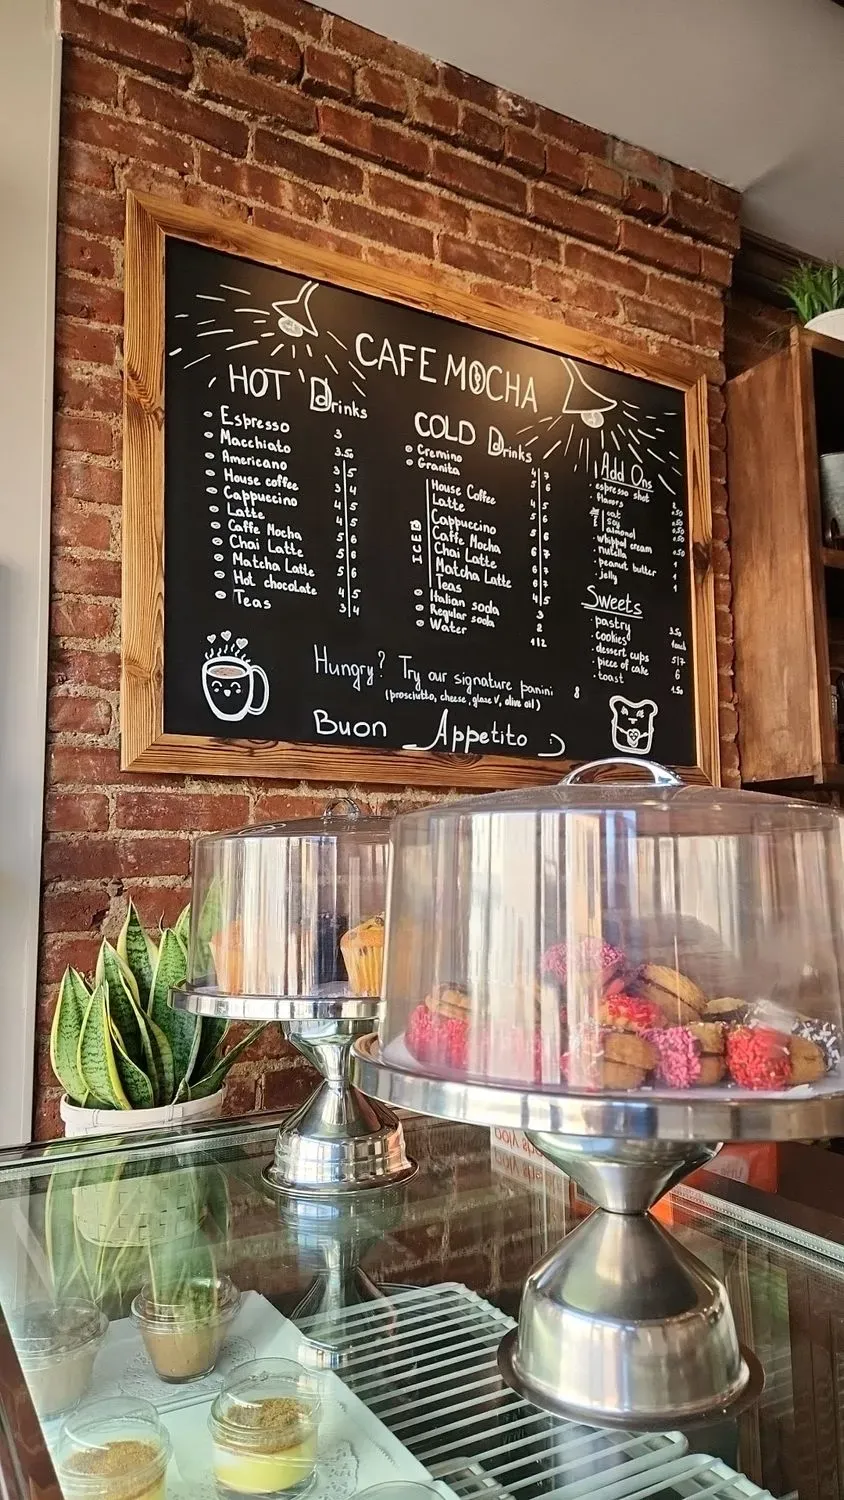 CAFE MOCHA
HOT Drinks
Espresso 3
Macchiato 3.50
Americano 3 5
House coffee 3 4
Cappuccino 4 5
Latte 4 5
Caffe Mocha 5 6
Chai Latte 5 6
Matcha Latte 5 6
Hot chocolate 4 5
Teas 3 4
COLD Drinks
Cremino 4 7
Granita 5 6
ICED
House Coffee 4 5
Latte 5 6
Cappuccino 5 6
Caffe Mocha 6 7
Chai Latte 6 7
Matcha Latte 6 7
Teas 4 5
Italian soda 3
Regular soda 2
Water 1 2
Add Ons
espresso shot
flavors
oat
soy
almond
whipped cream
nutella
peanut butter
jelly
Sweets
pastry 3.50
cookies
dessert cups 5/7
piece of cake 6
toast 1.50
Hungry? Try our signature panini 8
(prosciutto, cheese, glaze V, olive oil)
Buon Appetito